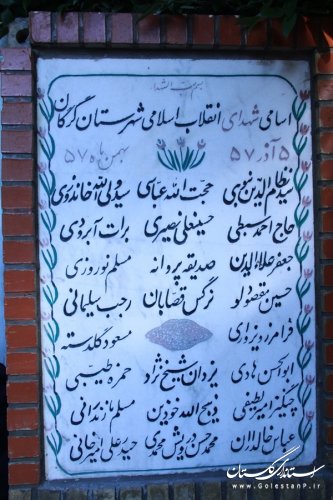 بسم رب الشهدا
اسامی شهدای انقلاب اسلامی شهرستان گرگان
۵ آذر ۵۷ بهمن ماه ۵۷
سید نظام الدین نبوی حجت الله عباسی سید ولی الله خاندوزی
حاج احمد سبطی حسینعلی نصیری برات آبرودی
جعفر علاءالدین صدیقه پروانه مسلم نوروزی
حسین مقصودلو نرگس قصابان رجب سلیمانی
فرامرز ویزواری مسعود گلدسته
ابوالحسن هادی یزدان شیخ نژاد حمزه طیبی
چنگیز امیر لطیفی ذبیح الله خودین مسلم مازندرانی
عباس خالداران محمد حسن درویش محمدی حیدرعلی امیرخانی
استانداری گلستان
www.GolestanP.ir